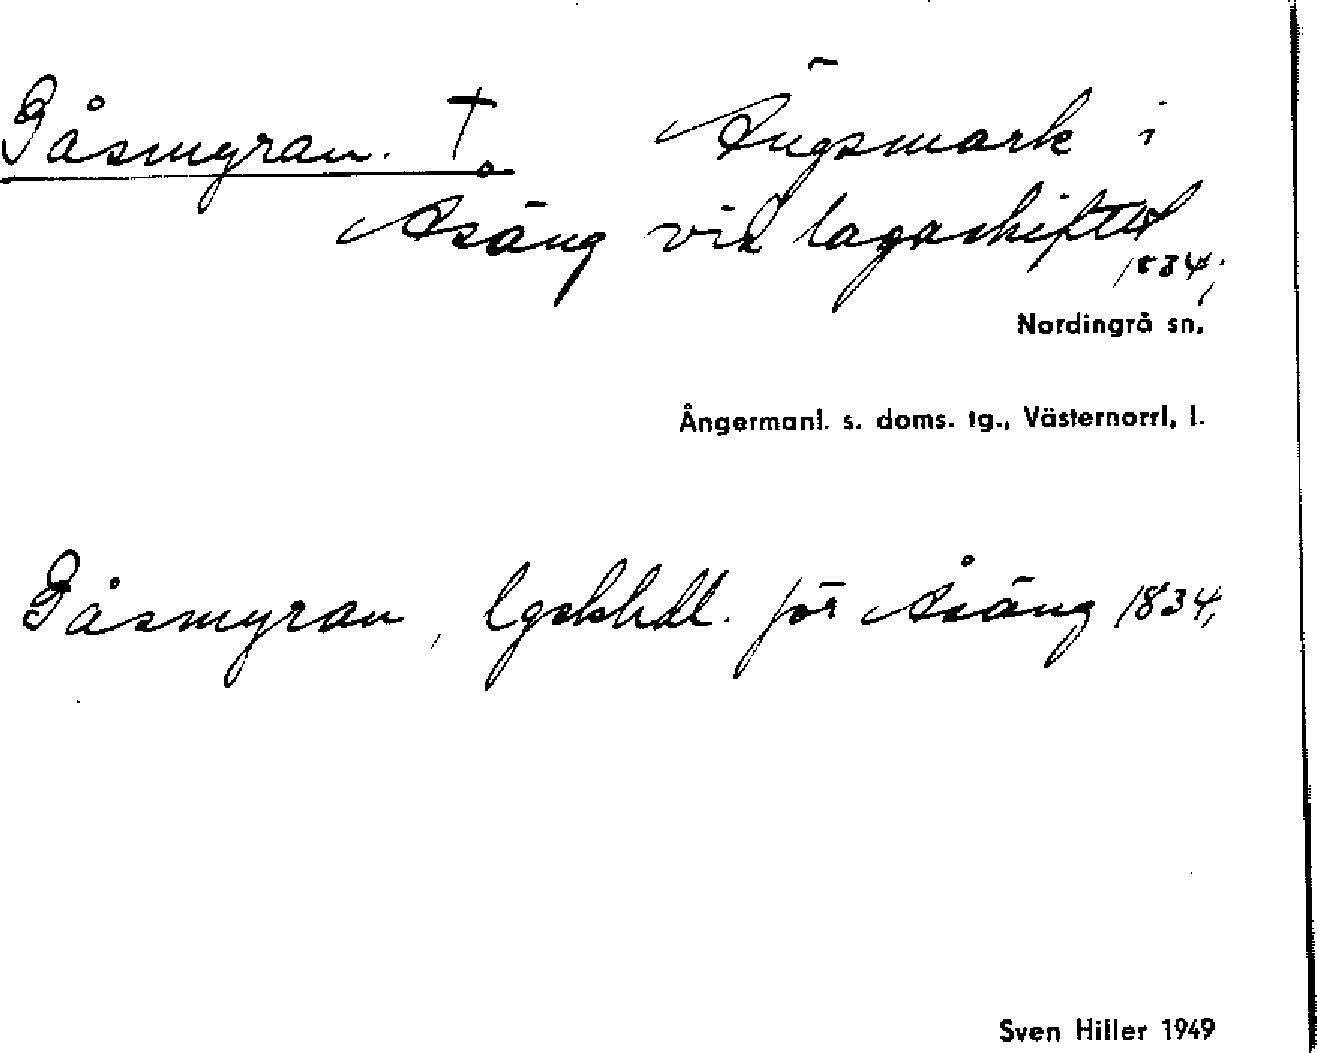 Gåsmyran. † Ängsmark i
Åsäng vid lagaskiftet
1834;
Nordingrå sn.
Ångermanl. s. doms. tg., Västernorrl. l.
Gåsmyran, lgskhdl. för Åsäng 1834,
Sven Hiller 1949